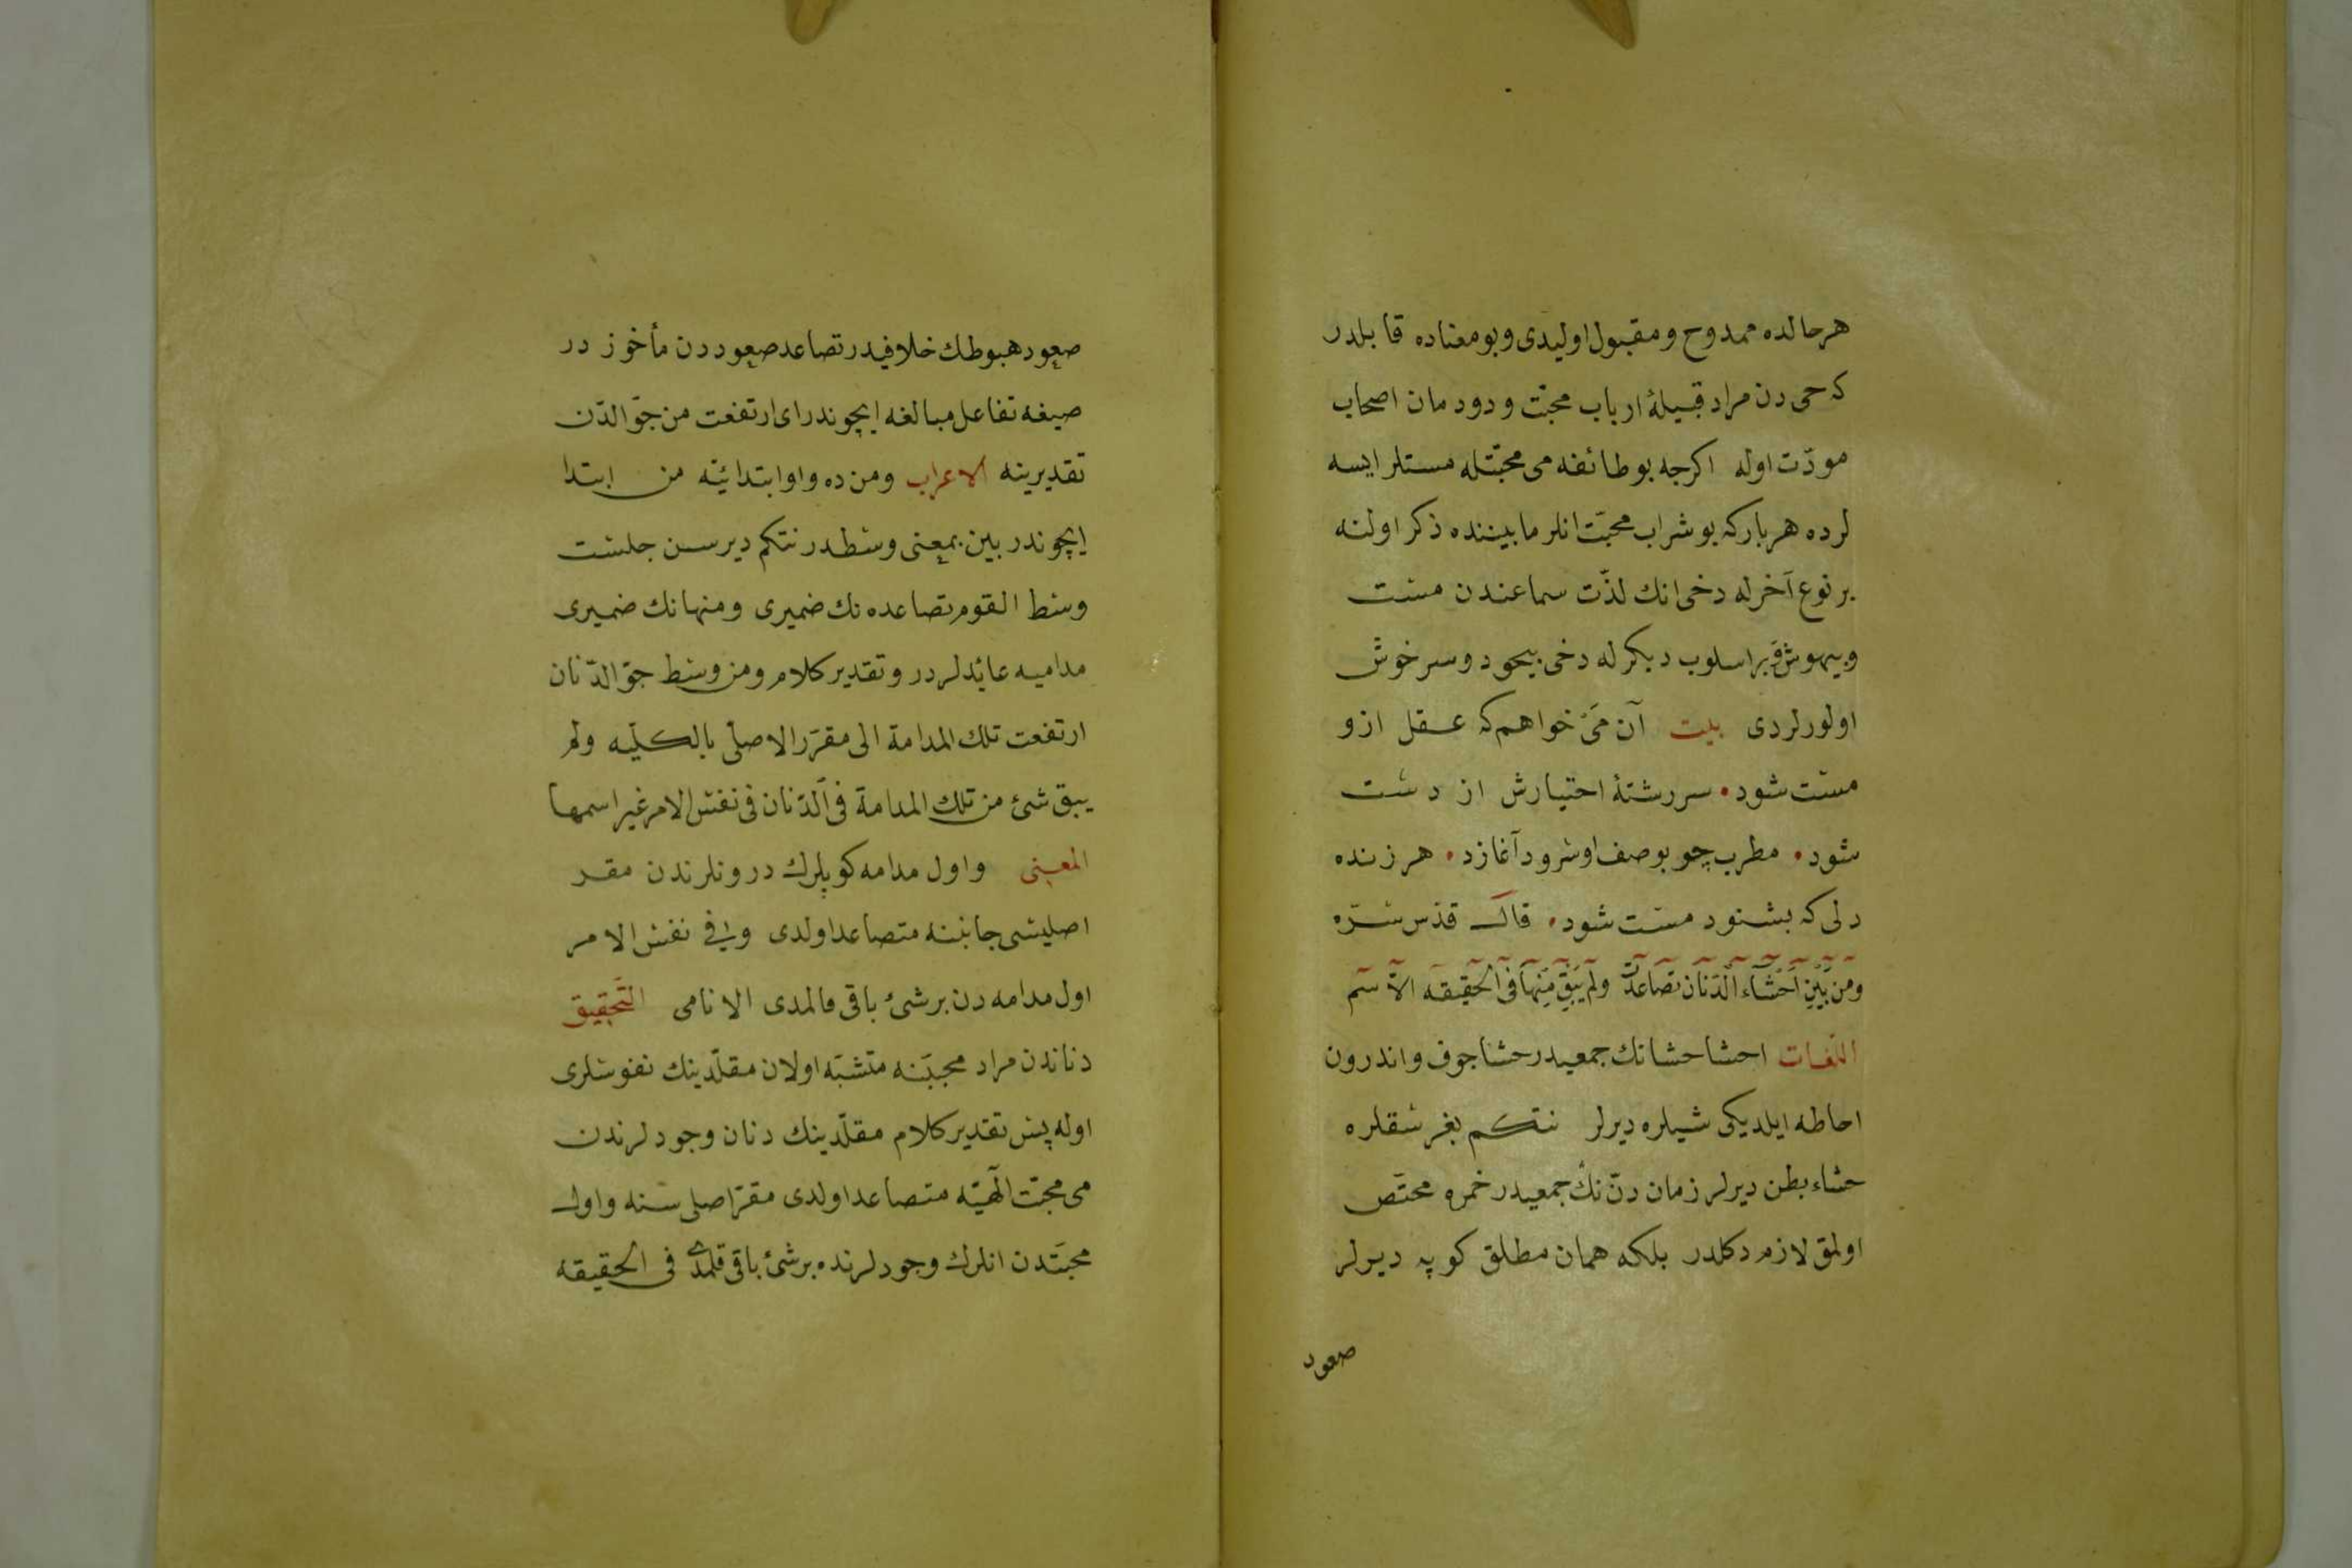 هرحالده ممدوح و مقبول اوليدى و بومعناده قابلدر
كه حى دن مراد قبيلهٔ ارباب محبّت و دودمان اصحاب
مودّت اوله اكرجه بوطائفه مى محبّتله مستلر ايسه
لرده هربار كه بو شراب محبّت انلر مابيننده ذكر اولنه
برنوع آخرله دخى انك لذّت سماعندن مست
وبيهوش و براسلوب ديكرله دخى بيخود و سرخوش
اولورلردى بيت آن مَىْ خواهم كه عقل ازو
مست شود • سررشتهٔ اختيارش از دست
شود • مطرب چو بوصف او سرود آغازد • هر زنده
دلى كه بشنود مست شود • قال قدّس سرّه
ومن بَيْنِ اَحْشَاءِ الْدّنَانِ تَصَاعَدَتْ ولَمْ يَبْقَ مِنْهَا فى الْحَقِيقَه الاّ اسم
اللّغات احشا حشانك جمعيدر حشا جوف و اندرون
احاطه ايلديكى شيلره ديرلر نتكم بغرسقلره
حشاء بطن ديرلر زمان دنّ نك جمعيدر خمره مختصّ
اولمق لازم دكلدر بلكه همان مطلق كوپه ديرلر
صعود
صعود هبوطك خلافيدر تصاعد صعوددن مأخوز در
صيغه تفاعل مبالغه ايچوندر اى ارتفعت من جوّ الدّن
تقديرينه الاعراب ومن ده واو ابتدائيّه من ابتدا
ايچوندر بين بمعنى وسطدر نتكم ديرسن جلست
وسط القوم تصاعده نك ضميرى و منهانك ضميرى
مداميه عائدلردر و تقدير كلام ومن وسط جوّ الدّنان
ارتفعت تلك المدامة الى مقرّر الاصلىّ بالكليّه ولم
يبق شئ من تلك المدامة فى الدّنان فى نفس الامر غير اسمها
المعنى واول مدامه كوپلرك درونلرندن مقر
اصليسى جانبنه متصاعد اولدى و فى نفس الامر
اول مدامه دن برشئ باقى قالمدى الا نامى التّحقيق
دناندن مراد محبّتنه متشبّه اولان مقلّدينك نفوسلرى
اوله پس تقدير كلام مقلّدينك دنان وجودلرندن
مى محبّت الٓهيّه متصاعد اولدى مقرّ اصلى سنه واول
محبّتدن انلرك وجودلرنده برشئ باقى قلمدى فى الحقيقه